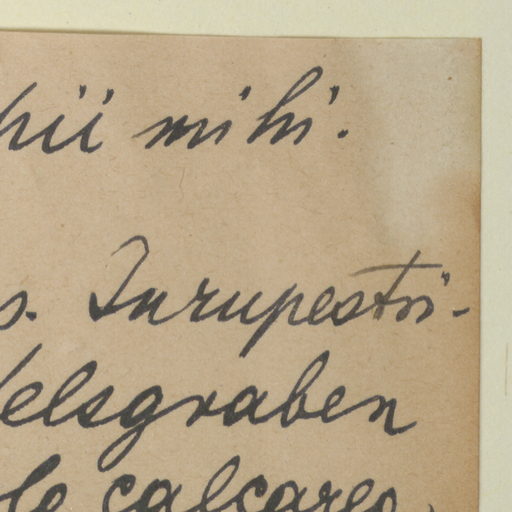 mihi.
In rupestri-
elsgraben
calcareo,